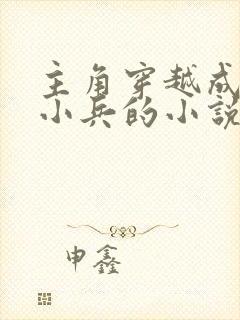 主角穿越成
小兵的小说
申鑫